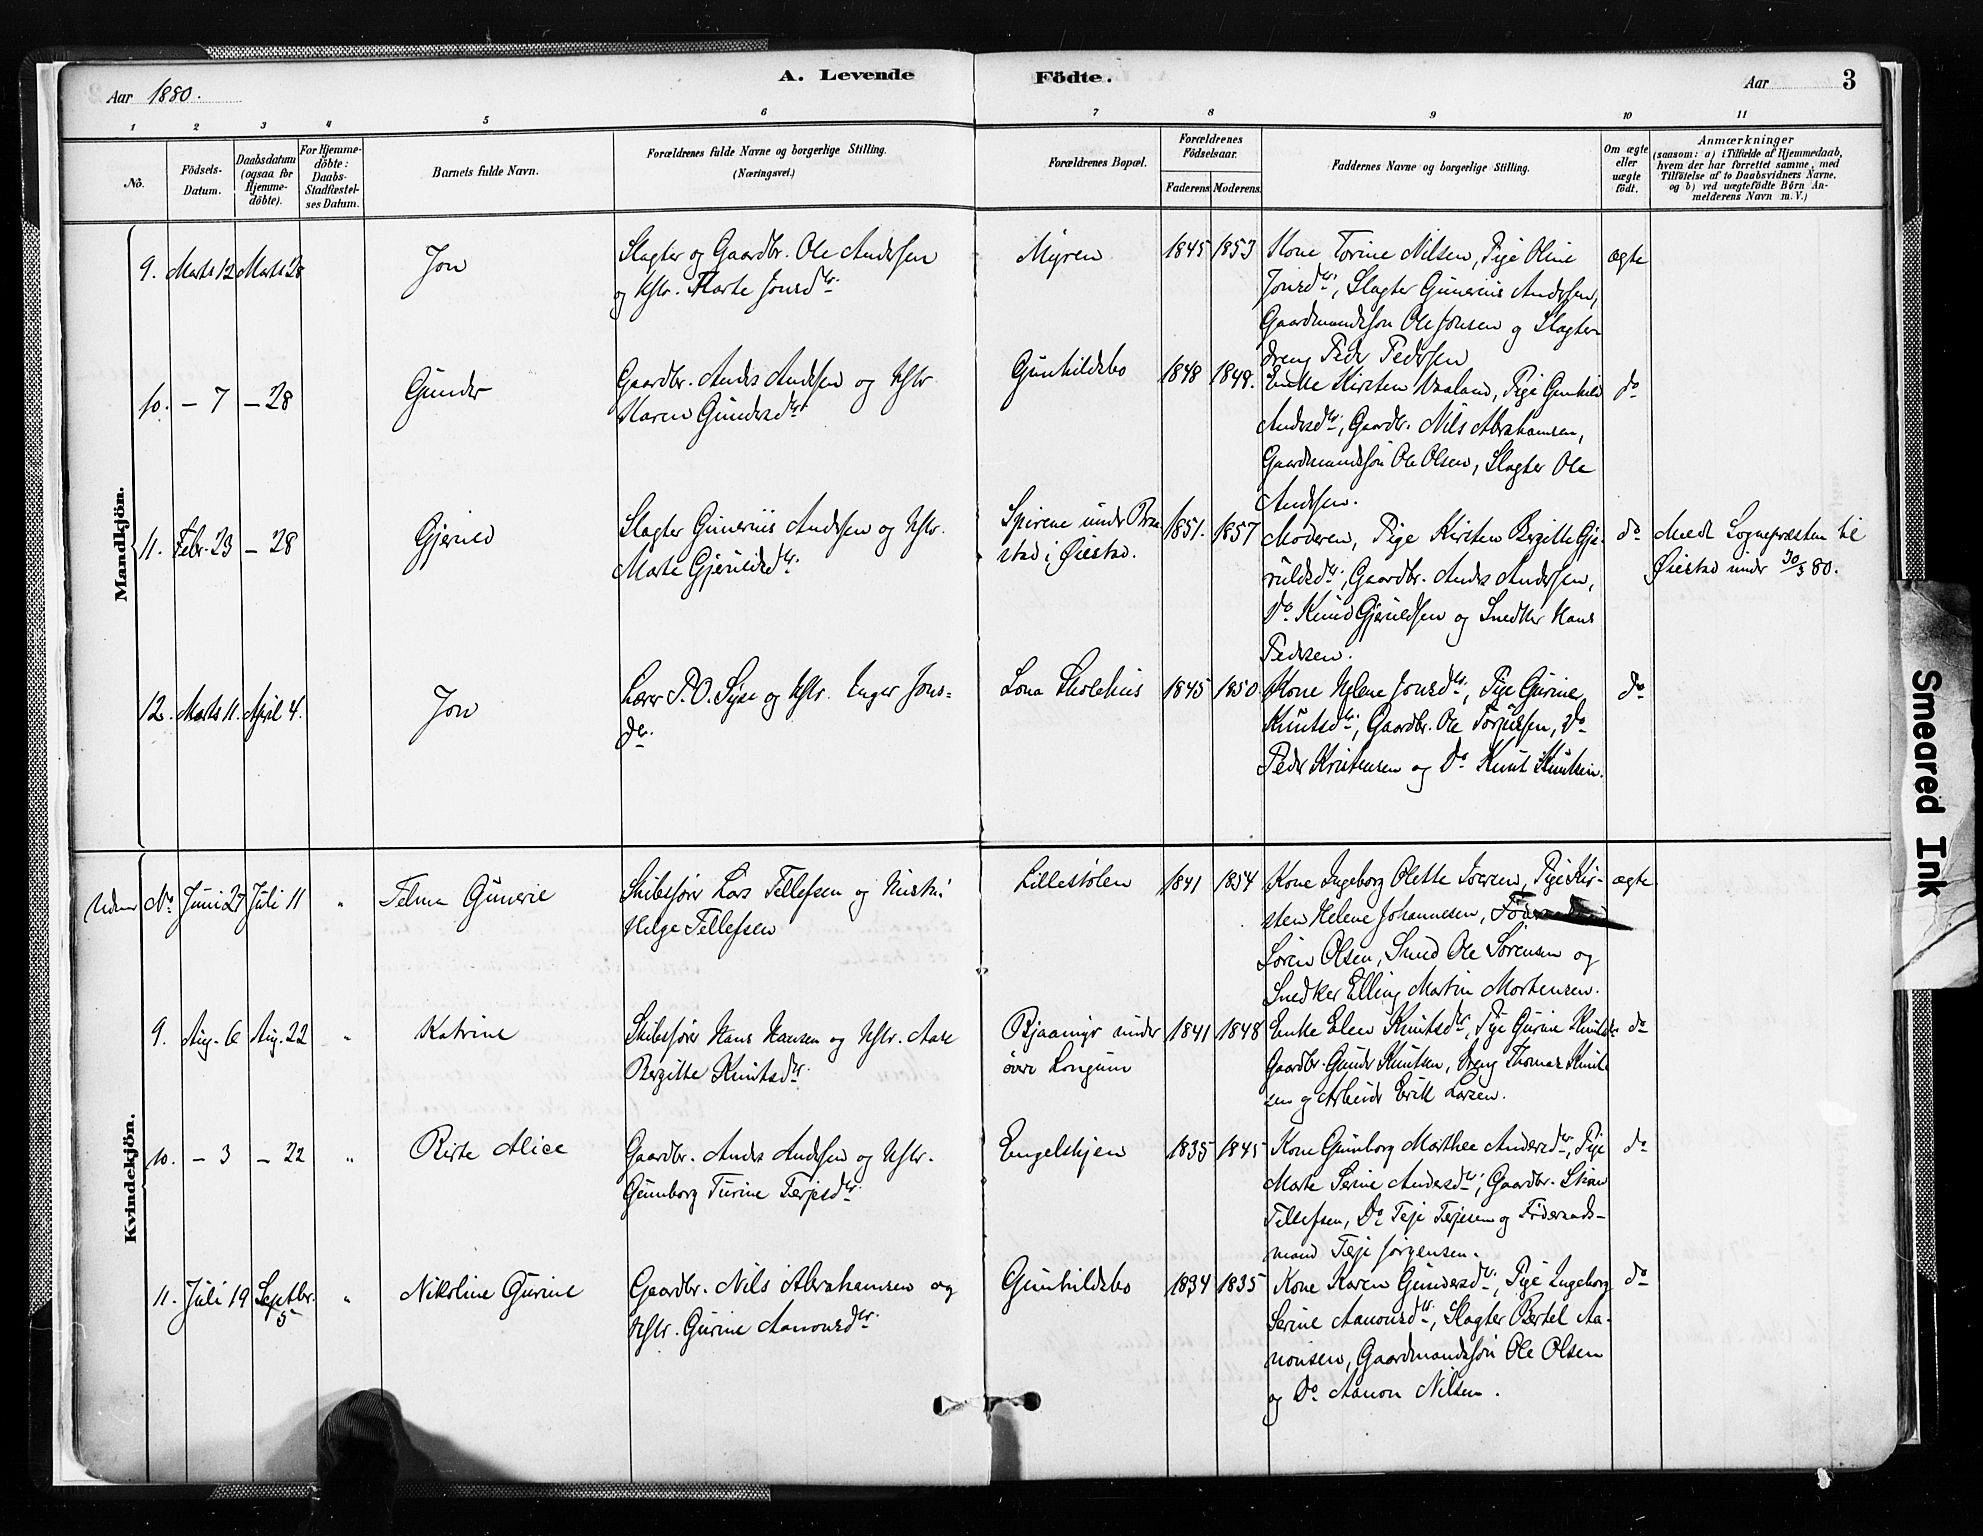 A. Levende Födte.
Aar 1880.
Aar 3
1 2 3 4 5 6 7 8 9 10 11
No.
Födsels-Datum.
Daabsdatum (ogsaa for Hjemme-döbte).
For Hjemme-döbte: Daabs-Stadfæstel-ses Datum.
Barnets fulde Navn.
Forældrenes fulde Navne og borgerlige Stilling.
(Næringsvei.)
Forældrenes Bopæl.
Forældrenes Födselsaar.
Faderens Moderens
Faddernes Navne og borgerlige Stilling.
Om ægte eller uægte födt.
Anmærkninger
(saasom: a) i Tilfælde af Hjemmedaab,
hvem der har forrettet samme, med
Tilföielse af to Daabsvidners Navne,
og b) ved uægtefödte Börn An-
melderens Navn m. V.)
Mandkjön.
9. Marts 12 Marts 28 Jon
Slagter og Gaardbr. Ole Andersen
og Hstr. Marte Jonsdtr.
Myren 1845 1853
Kone Torine Nilsen, Pige Oline
Jonsdtr., Slagter Gunerius Andersen,
Gaardmandssøn Ole Jonsen og Slagter-
dreng Peder Pedersen
ægte
10. – 7 – 28 Gunder
Gaardbr. Anders Andersen og Hstr
Karen Gundersdtr
Gunhildsbo 1848 1848.
Enke Kirsten Vraaland, Pige Gunhild
Andersdtr., Gaardbr. Nils Abrahamsen,
Gaardmandssøn Ole Olsen, Slagter Ole
Andersen.
do
11. Febr. 23 – 28 Gjeruld
Slagter Gunerius Andersen og Hstr.
Marte Gjeruldsdtr.
Spirene under Bra
stad i Øiestad.
1851. 1857
Moderen, Pige Kirsten Bergitte Gje-
ruldsdtr., Gaardbr. Anders Andersen,
Do Knud Gjeruldsen og Snedker Hans
Pedersen.
do
Meldt Sognepræsten til
Øiestad under 30/3 80.
12. Marts 11. April 4. Jon
Lærer P. O. Syse og Hstr. Inger Jons-
dtr.
Lona Skolehus 1845 1850
Kone Helene Jonsdtr., Pige Gurine
Knutsdtr., Gaardbr. Ole Torjussen, Do
Peder Kristensen og Do Knut Knutsen.
do
Kvindekjön.
Uden No Juni 27 Juli 11 " Telma Gunerie
Skibsfører Lars Tellefsen og Hustru
Helga Tellefsen
Lillestølen 1841 1854
Kone Ingeborg Olette Sørensen, Pige Kir-
sten Helene Johannesen,
Søren Olsen, Smed Ole Sørensen og
Snedker Elling Martin Mortensen.
ægte
9. Aug. 6 Aug. 22 " Katrine
Skibsfører Hans Hansen og Hstr. Aase
Bergitte Knutsdtr.
Bjaanigs under
øvre Longum
1841 1848
Enke Elen Knutsdtr, Pige Gurine Knutsdtr
Gaardbr. Gunder Knutsen, Dreng Thomas Knut-
sen og Arbeider Erik Larsen.
do
10. – 3 – 22 " Birte Alice
Gaardbr. Anders Andersen og Hstr.
Gunborg Turine Terjesdtr.
Engelskjen 1835 1845
Kone Gunborg Marthea Andersdtr, Pige
Marte Serine Andersdtr., Gaardbr. Stian
Tellefsen, Do Terje Terjesen og Føderaads-
mand Terje Jørgensen.
do
11. Juli 19 Septbr. 5 " Nikoline Gurine
Gaardbr. Nils Abrahamsen og
Hstr. Gurine Aanonsdtr.
Gunhildsbo 1834 1835
Kone Karen Gundersdtr., Pige Ingeborg
Serine Aanonsdtr., Slagter Bertel Aa-
nonsen, Gaardmandssøn Ole Olsen
og Do Aanon Nilsen.
do
Smeared Ink